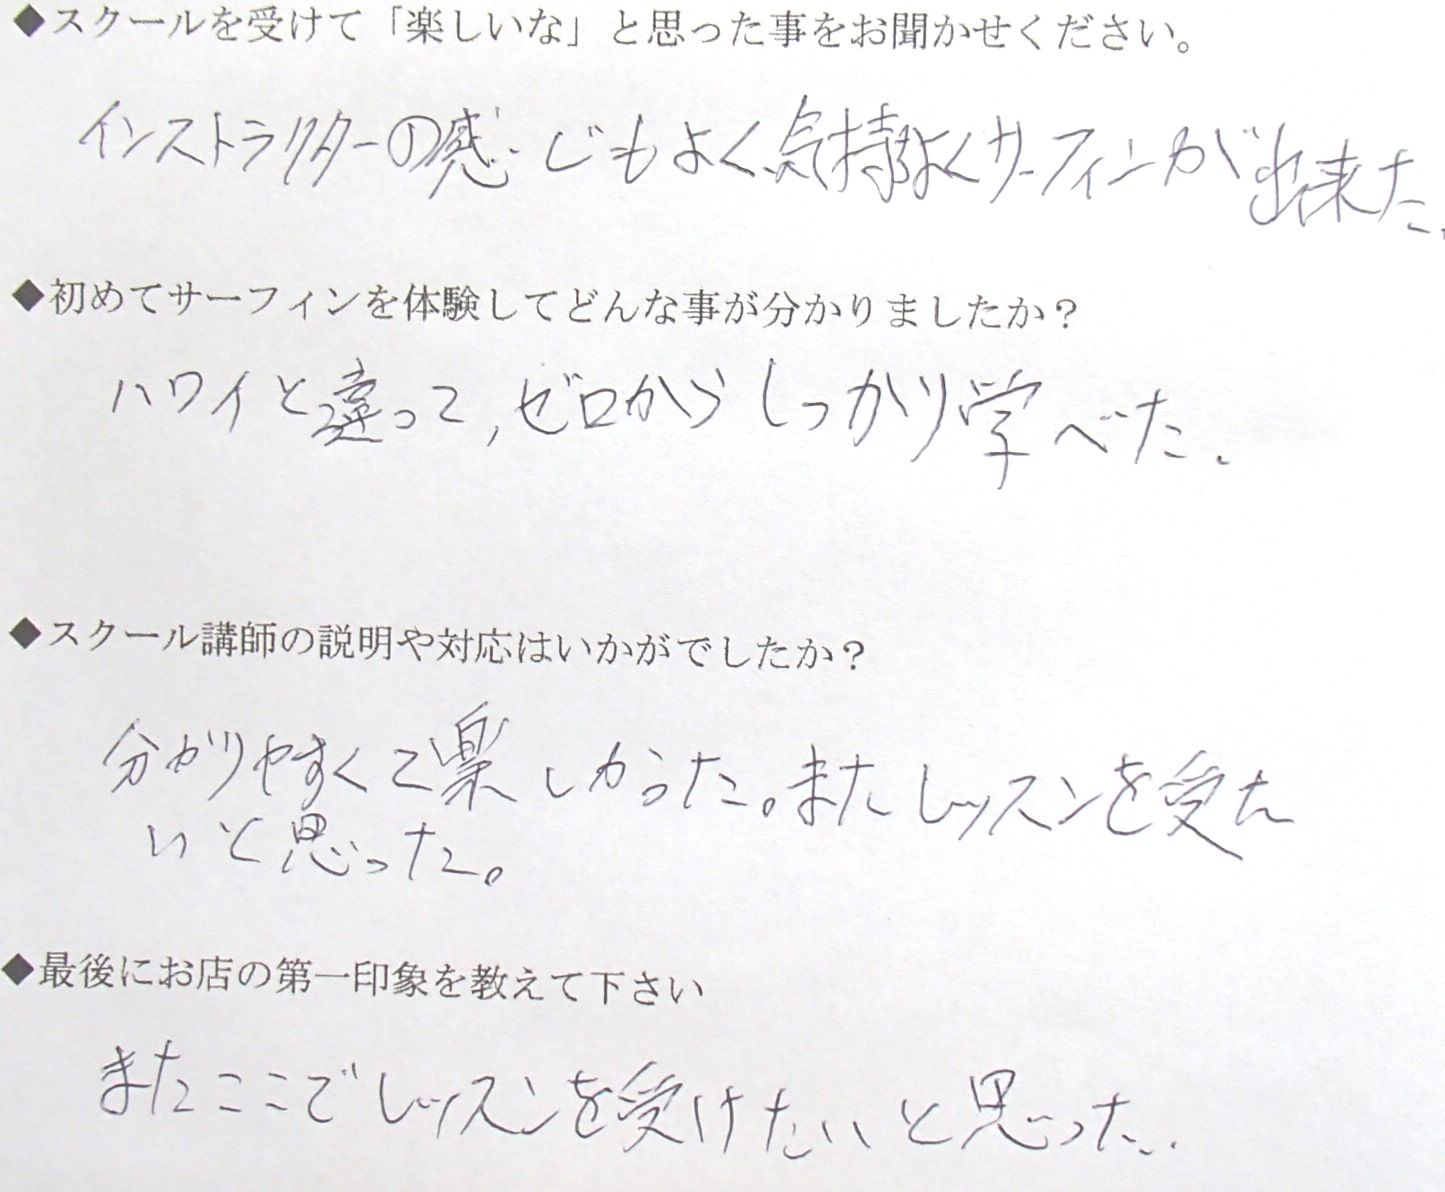 ◆スクールを受けて「楽しいな」と思った事をお聞かせください。
インストラクターの感じもよく、気持ちよくサーフィンが出来た。
◆初めてサーフィンを体験してどんな事が分かりましたか？
ハワイと違って,ゼロからしっかり学べた.
◆スクール講師の説明や対応はいかがでしたか？
分かりやすくて楽しかった。またレッスンを受た
いと思った。
◆最後にお店の第一印象を教えて下さい
またここでレッスンを受けたいと思った..